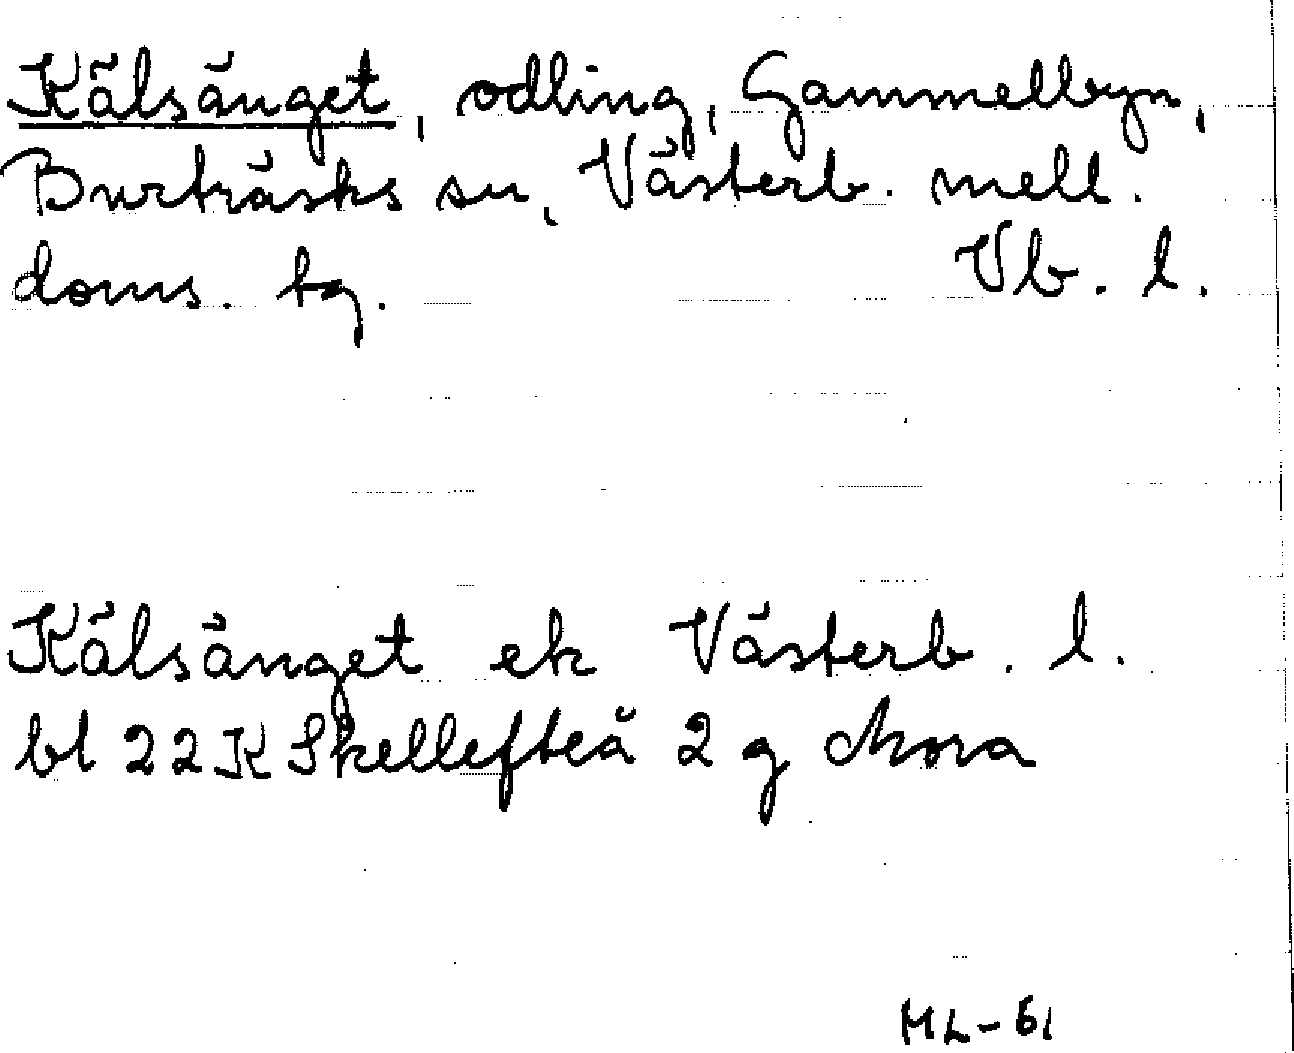 Kälsänget, odling, Gammelbyn,
Burträsks sn, Västerb. mell.
doms. tg. Vb. l.
Kälsänget ek Västerb. l.
bl 22K Skellefteå 2 g Mora
ML-61